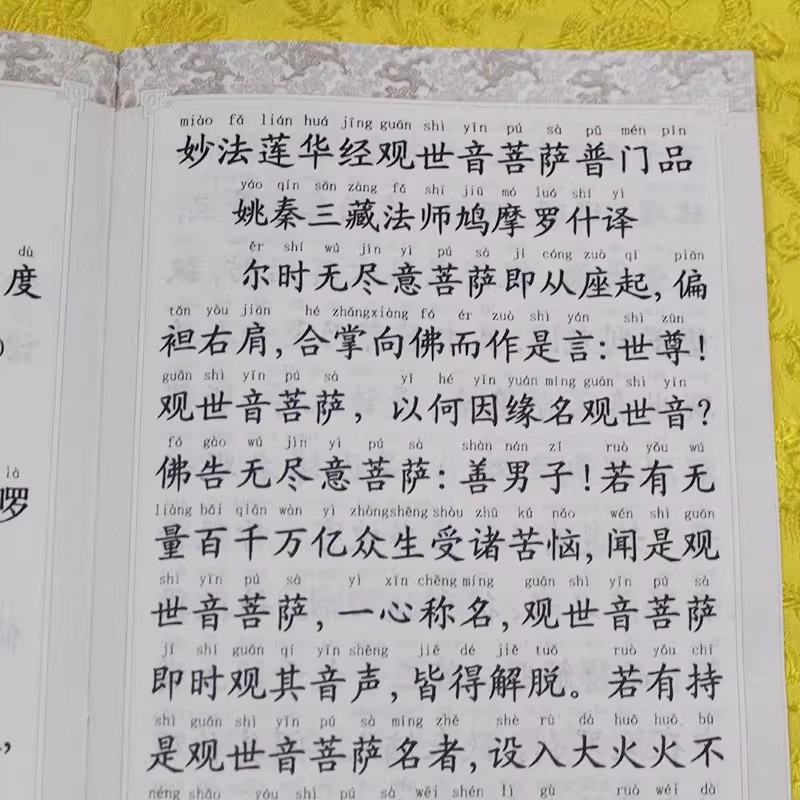 dù
度
là
啰
miào fǎ lián huá jīng guān shì yīn pú sà pǔ mén pǐn
妙法莲华经观世音菩萨普门品
yáo qín sān zàng fǎ shī jiū mó luó shí yì
姚秦三藏法师鸠摩罗什译
ěr shí wú jìn yì pú sà jí cóng zuò qǐ piān
尔时无尽意菩萨即从座起,偏
tǎn yòu jiān hé zhǎng xiàng fó ér zuò shì yán shì zūn
袒右肩,合掌向佛而作是言:世尊!
guān shì yīn pú sà yǐ hé yīn yuán míng guān shì yīn
观世音菩萨,以何因缘名观世音?
fó gào wú jìn yì pú sà shàn nán zǐ ruò yǒu wú
佛告无尽意菩萨:善男子!若有无
liàng bǎi qiān wàn yì zhòng shēng shòu zhū kǔ nǎo wén shì guān
量百千万亿众生受诸苦恼,闻是观
shì yīn pú sà yì xīn chēng míng guān shì yīn pú sà
世音菩萨,一心称名,观世音菩萨
jí shí guān qí yīn shēng jiē dé jiě tuō ruò yǒu chí
即时观其音声,皆得解脱。若有持
shì guān shì yīn pú sà míng zhě shè rù dà huǒ huǒ bù
是观世音菩萨名者,设入大火火不
néng shāo yóu shì pú sà wēi shén lì gù ruò wéi dà